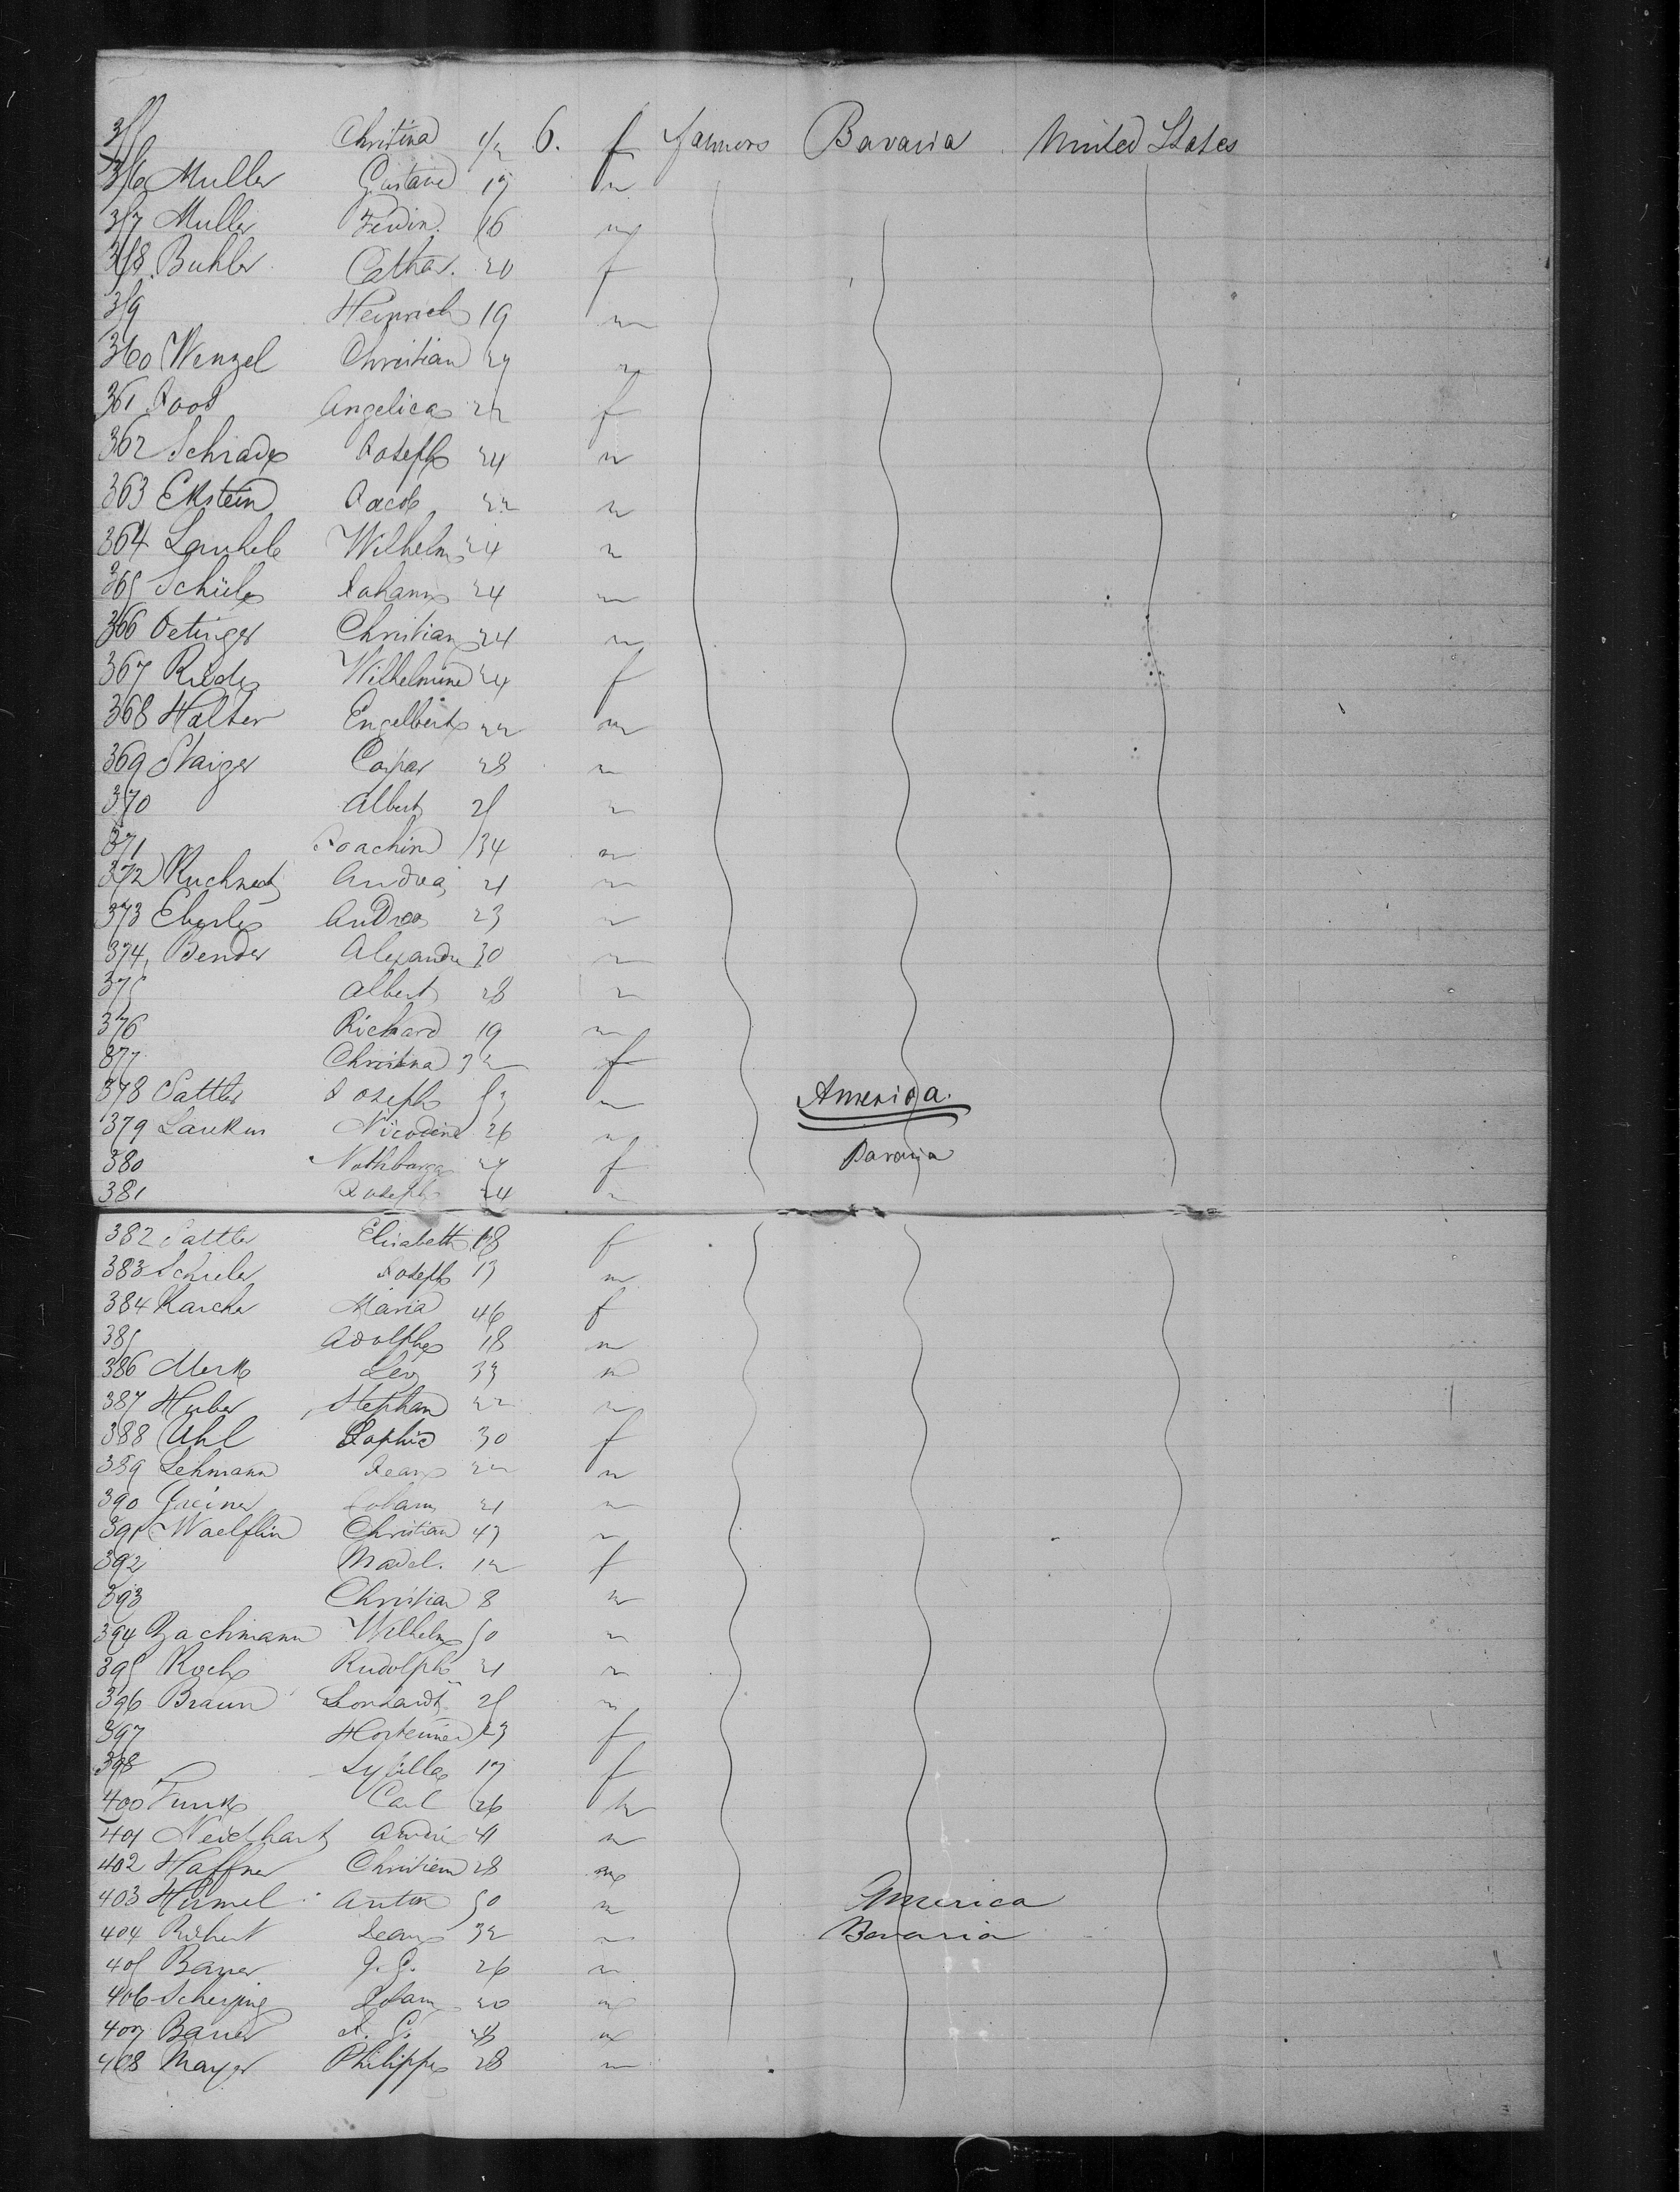 355 Christina 1/2 6. f farmers Bavaria United States
356 Muller Gustave 17 m
357 Muller 16 m
358 Buhler Cathar. 20 f
359 Heinrich 19 m
360 Wenzel Christian 27 m
361 Joos Angelica 22 f
362 Schrade Joseph 24 m
363 Ekstein Jacob 22 m
364 Wilhelm 24 m
365 Schüle Johann 24 m
366 Oetinger Christian 24 m
367 Wilhelmine 24 f
368 Halter Engelbert 22 m
369 Staiger Caspar 28 m
370 Albert 25 m
371 Joachim 34 m
372 Andrea 21 m
373 Eberle Andrea 23 m
374 Bender Alexandre 30 m
375 Albert 28 m
376 Richard 19 m
377 Christina 32 f
378 Sattler Joseph 53 m America.
379 26 m
380 Nothburga 27 f Bavaria
381 Joseph 24 m
382 Sattler Elisabeth 18 f
383 Joseph 17 m
384 Karcher Maria 46 f
385 Adolphe 18 m
386 Merk Leo 33 m
387 Huber Stephan 22 m
388 Uhl Sophie 30 f
389 Lehmann Jean 22 m
390 Greiner Johann 21 m
391 Waelflin Christian 47 m
392 Madel. 12 f
393 Christian 8 m
394 Bachmann Wilhelm 50 m
395 Koch Rudolph 21 m
396 Braun Leonhardt 25 m
397 23 f
398 Sybilla 17 f
400 Funk Carl 26 m
401 Neidhart André 41 m
402 Haffner Christian 28 m
403 Himmel Anton 50 m America
404 Jean 32 m Bavaria
405 Bauer J. G. 26 m
406 Adam 20 m
407 Bauer 28 m
408 Mayer Philippe 28 m